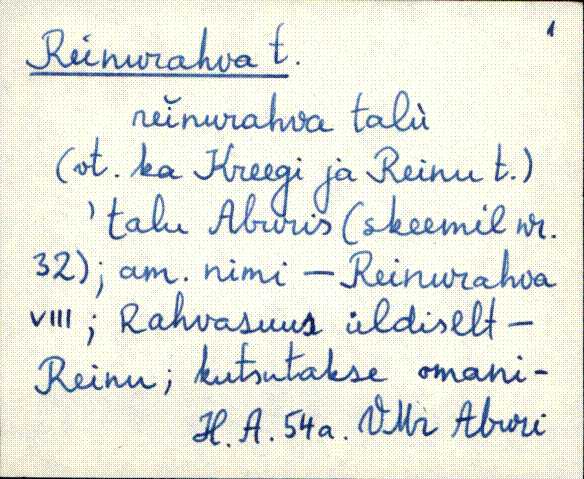 1
Reinurahva t.
reĭnurahva talù
(vt. ka Kreegi ja Reinu t.)
' talu Aburis (skeemil nr.
32); am. nimi – Reinurahva
VIII; Rahvasuus üldiselt –
Reinu; kutsutakse omani-
H. A. 54a. VMr Aburi